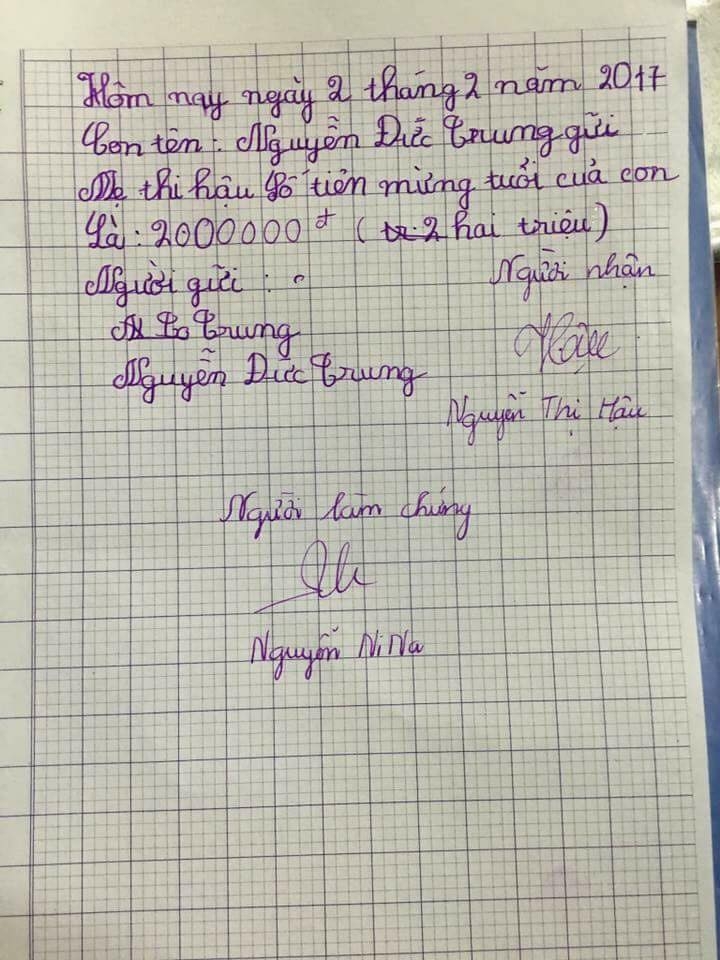 Hôm nay ngày 2 tháng 2 năm 2017
Con tên: Nguyễn Đức Trung gửi
Mẹ thi hậu số tiền mừng tuổi của con
Là: 2000000đ (2 hai triệu)
Người gửi:
Người nhận
Trung
Hậu
Nguyễn Đức Trung
Nguyễn Thị Hậu
Người làm chứng
Nguyễn NiNa